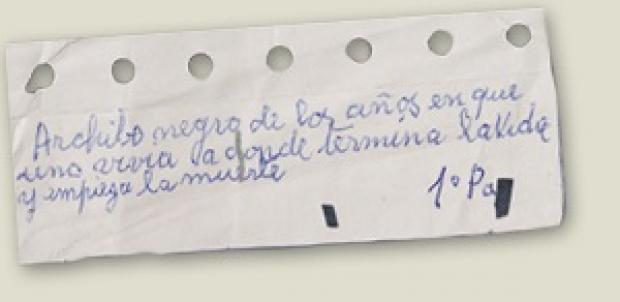 Archibo negro de los años en que
uno vivia a donde termina la Vida
y empieza la muerte
1º Pa